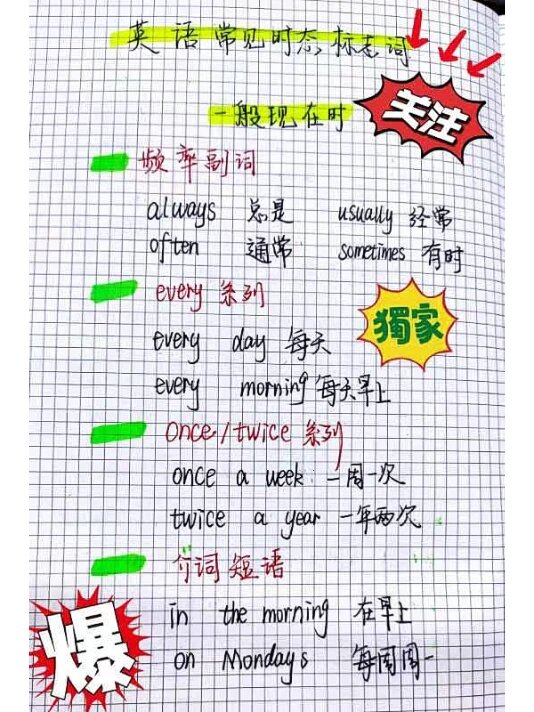 英语常见时态标志词
关注
一般现在时
频率副词
always 总是 usually 经常
often 通常 sometimes 有时
every系列
獨家
every day 每天
every morning 每天早上
once/twice系列
once a week 一周一次
twice a year 一年两次
介词短语
in the morning 在早上
on Mondays 每周周一
爆